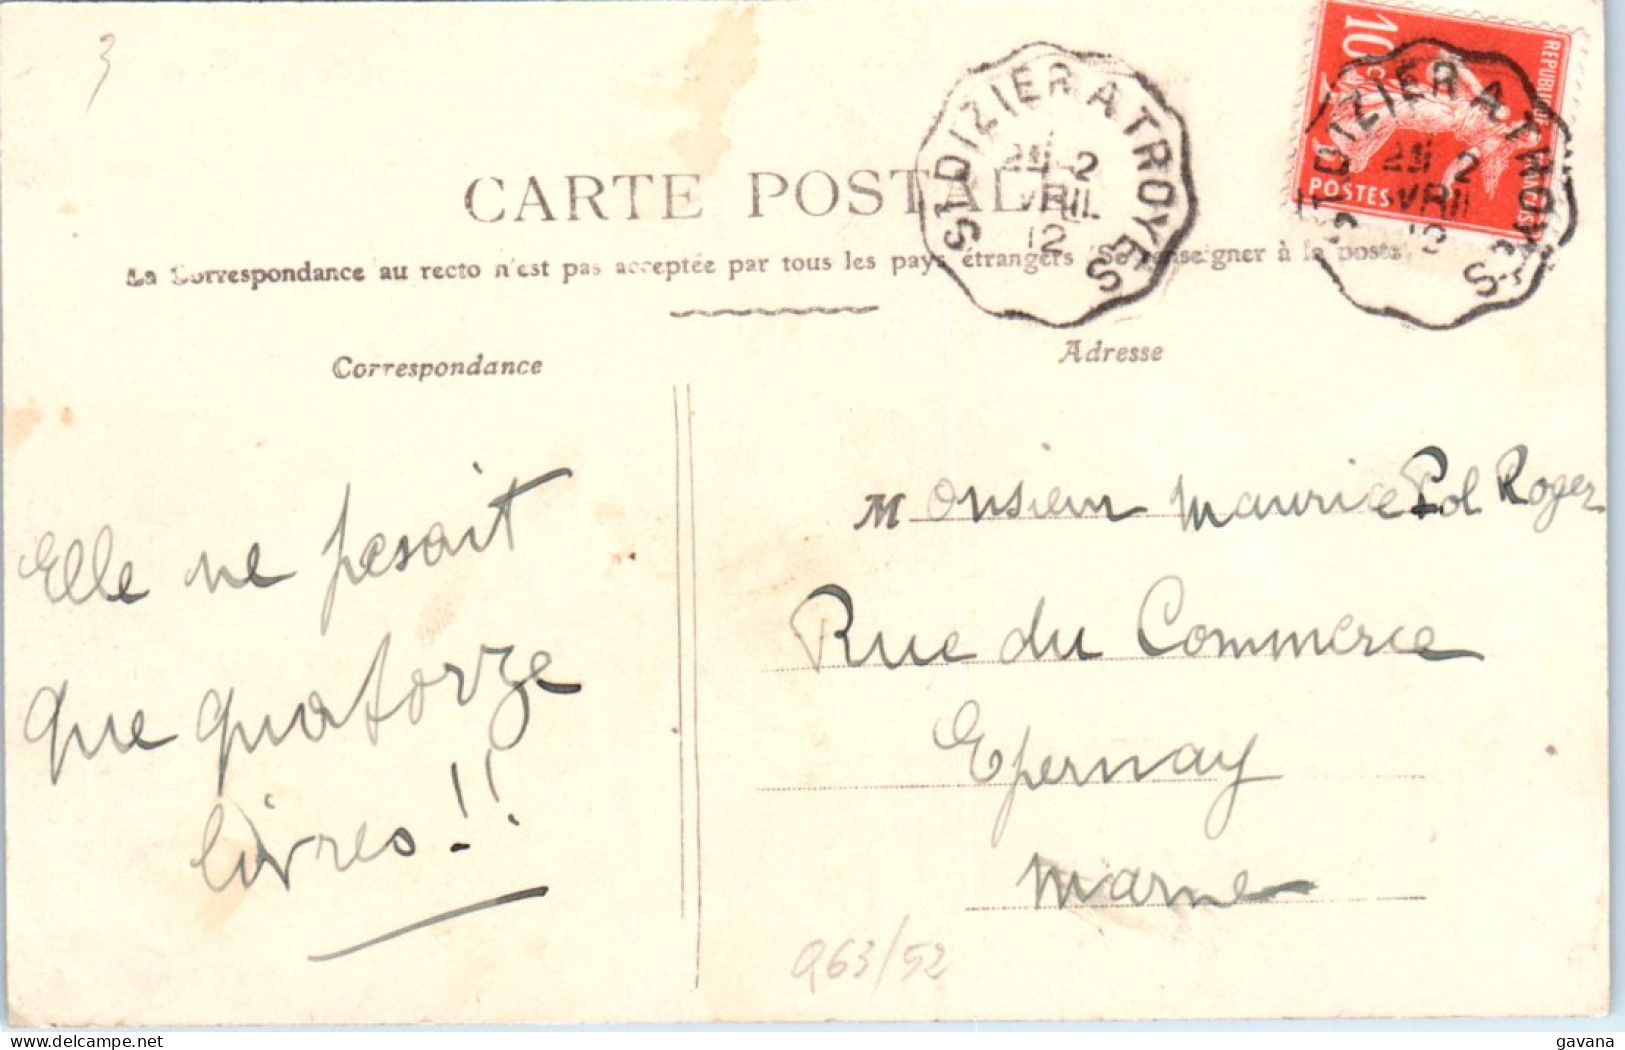 3
CARTE POSTALE
La Correspondance au recto n'est pas acceptée par tous les pays étrangers (Se renseigner à la poste)
ST DIZIER A TROYES
2
AVRIL
12
10c
REPUBLIQUE FRANÇAISE
POSTES
ST DIZIER A TROYES
2
AVRIL
12
Correspondance
Adresse
Elle ne pesait
que quatorze
livres!!
Monsieur Maurice Pol Roger
Rue du Commerce
Epernay
Marne
Q63/52
gavana